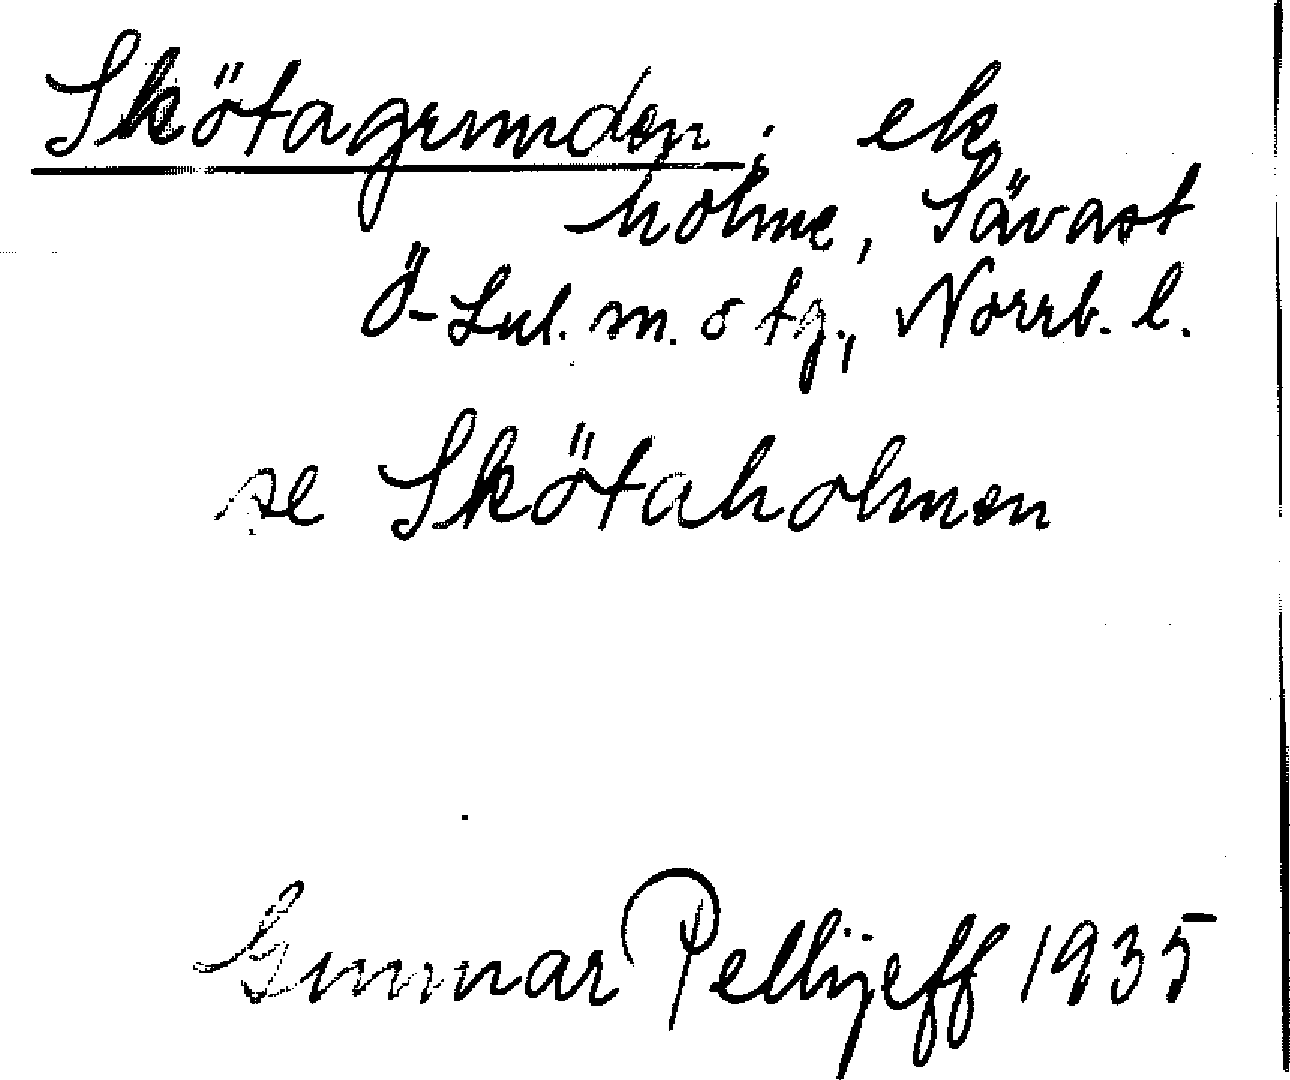 Skötagrunden: ek
holme, Sävast
Ö-Lul. m. o tg., Norrb. l.
se Skötaholmen
Gunnar Pellijeff 1935